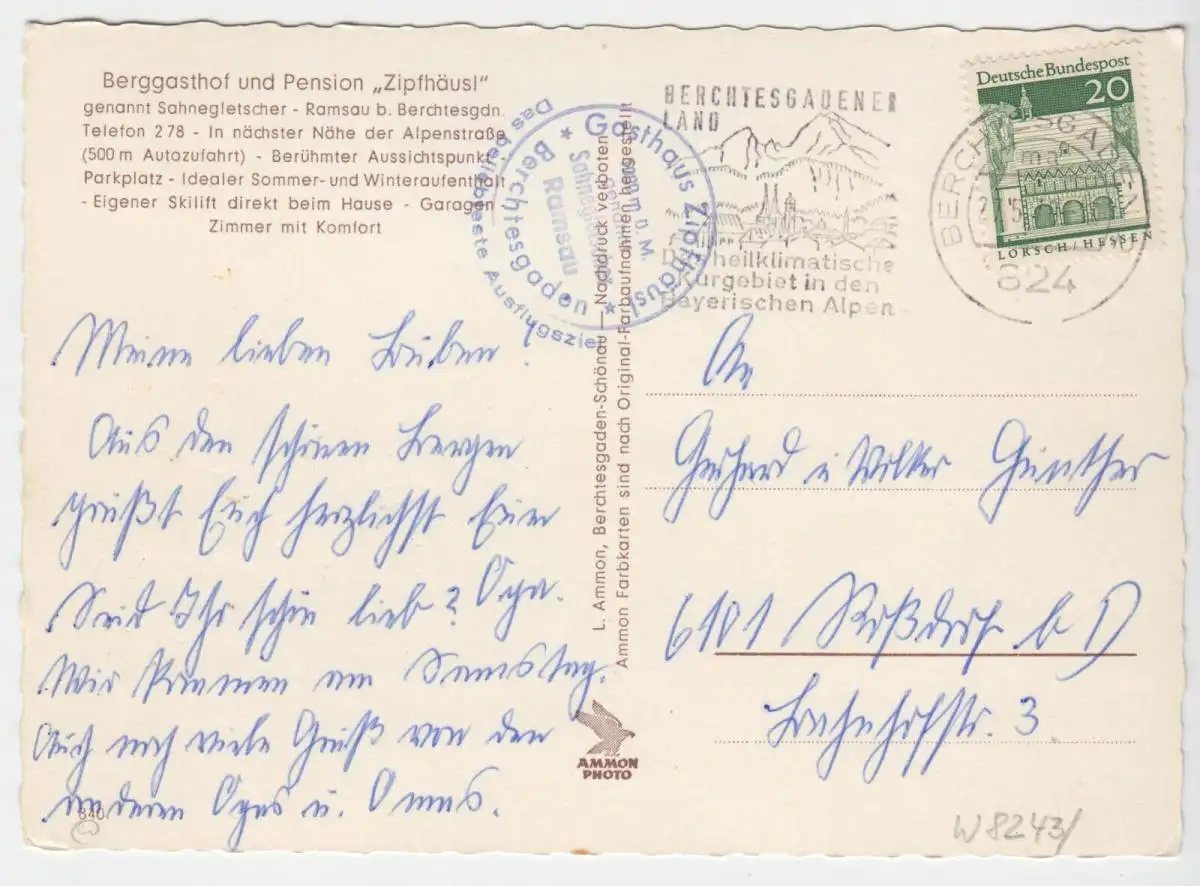 Berggasthof und Pension „Zipfhäusl“
genannt Sahnegletscher - Ramsau b. Berchtesgdn.
Telefon 278 - In nächster Nähe der Alpenstraße
(500 m Autozufahrt) - Berühmter Aussichtspunkt
Parkplatz - Idealer Sommer- und Winteraufenthalt
- Eigener Skilift direkt beim Hause - Garagen -
Zimmer mit Komfort
Das beliebteste Ausflugsziel
Gasthaus Zipfhäusl
Berchtesgaden
Ramsau
BERCHTESGADENER
LAND
heilklimatische
Kurgebiet in den
Bayerischen Alpen
Deutsche Bundespost
20
LORSCH/HESSEN
824
Meine lieben Buben!
Aus den schönen Bergen
grüßt Euch herzlichst Euer
Opa.
Seid Ihr schön lieb?
Wir kommen am Samstag.
Auch noch viele Grüße von den
anderen Opas u. Omas.
L. Ammon, Berchtesgaden-Schönau — Nachdruck verboten
Ammon Farbkarten sind nach Original-Farbaufnahmen hergestellt
AMMON
PHOTO
An
Gerhard u Volker Günther
6101 Roßdorf b D
Bahnhofstr. 3
840
W8243/